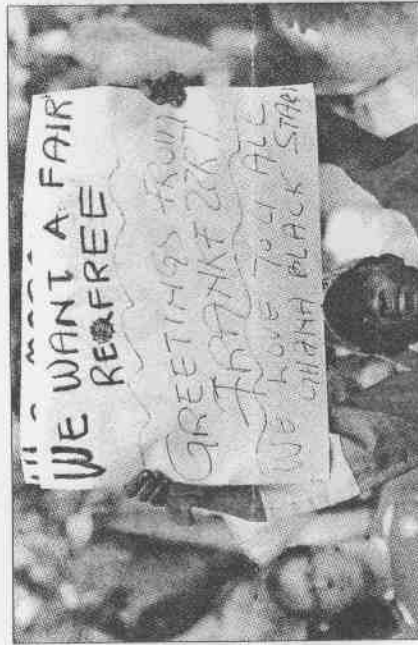 WE WANT A FAIR
REFREE
GREETINGS FROM
FRANKFURT
WE LOVE YOU ALL
GHANA BLACK STARS